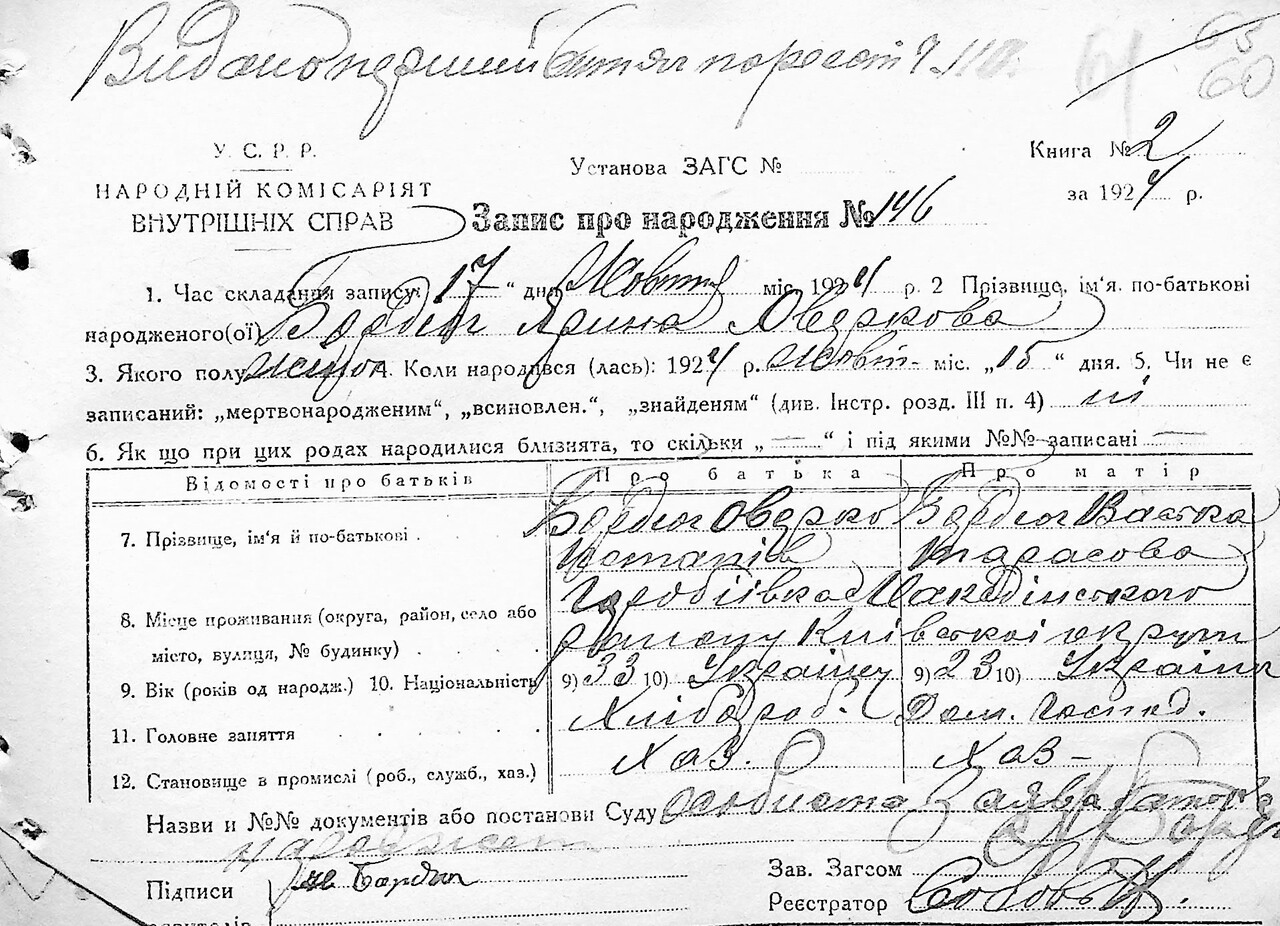 Видано перший витяг по реєст
65
61 60
У. С. Р. Р.
НАРОДНІЙ КОМІСАРІЯТ
ВНУТРІШНІХ СПРАВ
Установа ЗАГС №
Книга № 2
за 1924 р.
Запис про народження № 146
1. Час складання запису: 17 “ дня Жовтня міс. 1924 р. 2 Прізвище, ім'я, по-батькові
народженого(ої) Бардюг Ярина Оверкова
3. Якого полу жіноч 4. Коли народився (лась): 1924 р. Жовт- міс. „15“ дня. 5. Чи не є
записаний: „мертвонародженим“, „всиновлен.“, „знайденям“ (див. Інстр. розд. III п. 4) ні
6. Як що при цих родах народилися близнята, то скільки „ — “ і під якими №№ записані —
Відомості про батьків Про батька Про матір
7. Прізвище, ім'я й по-батькові . Бардюг Оверко Бардюг Васька
Остапів Тарасова
8. Місце проживання (округа, район, село або
місто, вулиця, № будинку) . району Київської округи
9. Вік (років од народж.) 10. Національність 9) 33 10) Українц 9) 23 10) Україн
11. Головне заняття Хлібороб. Дом. Господ.
12. Становище в промислі (роб., служб., хаз.) Хаз. Хаз -
Назви и №№ документів або постанови Суду Особиста Заява
Підписи
Зав. Загсом
Реєстратор